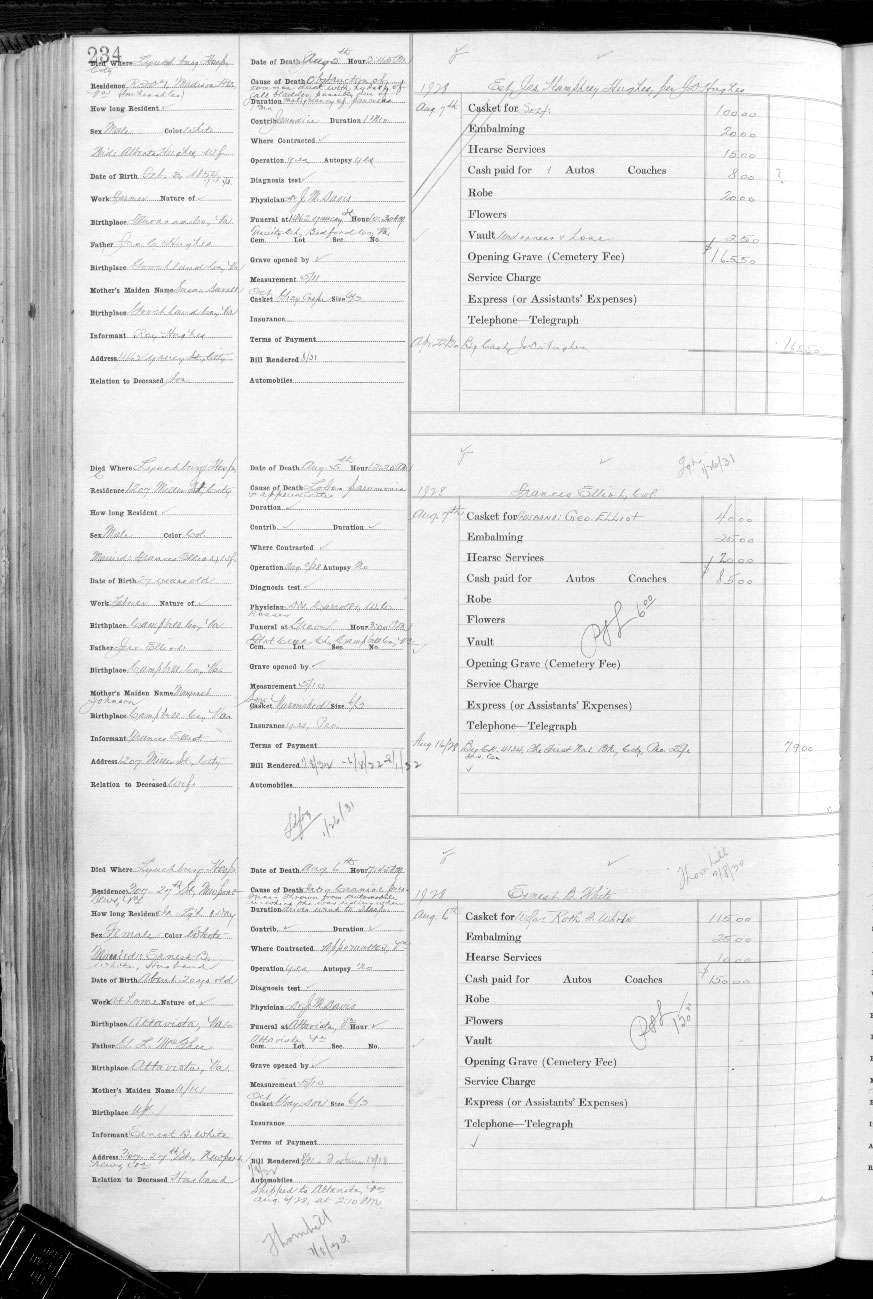 234
Died Where Lynchburg Hosp.
City
Residence R.F.D. #1, Madison Hts
How long Resident ✓
Sex Male Color White
Wid: Alberta Hughes, wf.
Date of Birth Oct. 2,
Work Farmer Nature of ✓
Birthplace Co, Va
Father Jno. C. Hughes
Birthplace Goochland Co, Va
Mother's Maiden Name Susan
Birthplace Goochland Co, Va
Informant Roy Hughes
Address St, City
Relation to Deceased Son
Date of Death Aug 5th Hour 2:45 PM
Cause of Death Obstruction of
common duct with hydrops of
gall bladder, possibly due to
Duration malignancy of pancreas
Contrib. Jaundice Duration 1 Mo
Where Contracted ✓
Operation yes Autopsy yes
Diagnosis test ✓
Physician Dr. J. W. Davis
Funeral at Hour 10:30 AM
Cem. Lot Sec. No.
Trinity Ch, Bedford Co, Va.
Grave opened by ✓
Measurement 5/11
Oct.
Casket Gray Crepe Size 6/3
Insurance
Terms of Payment
Bill Rendered 8/31
Automobiles
1928 Est, Jas. Humphrey Hughes, per J.O. Hughes
Aug 7th Casket for Self. 100.00
Embalming 20.00
Hearse Services 15.00
Cash paid for 1 Autos Coaches 8.00 ?
Robe 20.00
Flowers
Vault 2.50
Opening Grave (Cemetery Fee) $165.50
Service Charge
Express (or Assistants' Expenses)
Telephone—Telegraph
By Cash, J.O. Hughes 165.50
Died Where Lynchburg Hosp.
Residence 1207 Miller St, City
How long Resident ✓
Sex Male Color Col
Married: Frances Elliot, wf.
Date of Birth years old
Work Laborer Nature of ✓
Birthplace Campbell Co, Va
Father Geo. Elliot
Birthplace Campbell Co, Va
Mother's Maiden Name Margaret
Johnson
Birthplace Campbell Co, Va
Informant Frances Elliot
Address 1207 Miller St, City
Relation to Deceased Wife
Date of Death Aug. 5th Hour
Cause of Death Lobar pneumonia
& appendicitis
Duration ✓
Contrib. ✓ Duration ✓
Where Contracted ✓
Operation Autopsy No
Diagnosis test ✓
Physician
Funeral at Grave Hour 3:00 PM
Cem. Lot Sec. No.
Flat Creek Ch, Campbell Co, Va
Grave opened by ✓
Measurement 5/10
Casket Varnished Size 6/3
Insurance yes,
Terms of Payment
Bill Rendered
Automobiles
1/26/31
1/26/31
1928 Frances Elliot, Col
Aug. 7th Casket for Husband: Geo. Elliot 40.00
Embalming 25.00
Hearse Services 20.00
Cash paid for Autos Coaches $85.00
Robe
Flowers
P&L 6.00
Vault
Opening Grave (Cemetery Fee)
Service Charge
Express (or Assistants' Expenses)
Telephone—Telegraph
Aug 16/28 By Ck. 4134, The First Nat. Bk, City, Life
Ins. Co. 79.00
Died Where Lynchburg Hosp.
Residence 307 27th St, Newport
News, Va
How long Resident
Sex Female Color White
Married: Ernest B.
White, Husband
Date of Birth About years old
Work At home Nature of ✓
Birthplace Altavista, Va
Father McGhee
Birthplace Altavista, Va.
Mother's Maiden Name U/K
Birthplace U/K
Informant Ernest B. White
Address 307 27th St, Newport
News, Va
Relation to Deceased Husband
Date of Death Aug 6th Hour
Cause of Death Intra Cranial
thrown from automobile
in which she was riding when
Duration driver went to sleep
Contrib. ✓ Duration ✓
Where Contracted Appomattox, Va
Operation yes Autopsy No
Diagnosis test ✓
Physician Dr. J. W. Davis
Funeral at Altavista, Va Hour ✓
Altavista, Va
Cem. Lot Sec. No.
Grave opened by ✓
Measurement 5/10
Oct.
Casket Gray Size 6/3
Insurance
Terms of Payment
Bill Rendered
Automobiles
Shipped to Altavista, Va
Aug. 6/28, at 2:10 PM
Thornhill
7/8/30
Thornhill
7/8/30
1928 Ernest B. White
Aug. 6th Casket for Wife: Ruth A. White 115.00
Embalming 25.00
Hearse Services 10.00
Cash paid for Autos Coaches $150.00
Robe
Flowers
P&L 150.00
Vault
Opening Grave (Cemetery Fee)
Service Charge
Express (or Assistants' Expenses)
Telephone—Telegraph